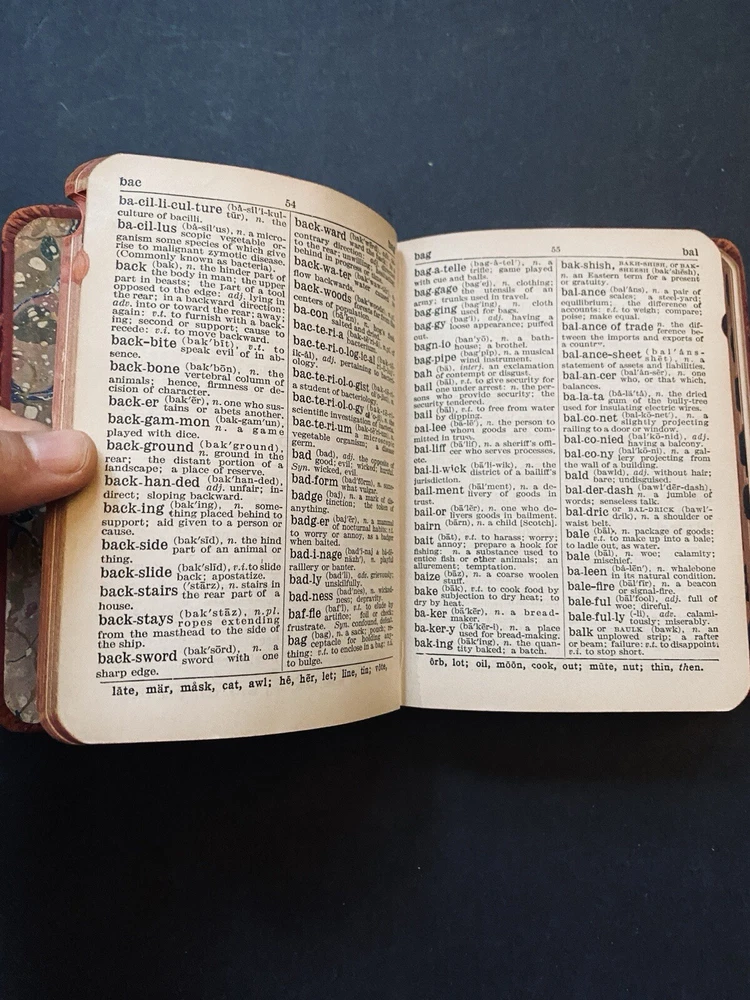 bac
54
ba-cil-li-cul-ture (bă-sil'i-kul-
culture of bacilli. tūr), n. the
ba-cil-lus (bá-sil'us), n. a micro-
scopic vegetable or-
ganism some species of which give
rise to malignant zymotic disease.
(Commonly known as bacteria).
back (bak), n. the hinder part of
the body in man; the upper
part in beasts; the part of a tool
opposed to the edge: adj. lying in
the rear; in a backward direction:
adv. into or toward the rear; away;
again: v.t. to furnish with a back-
ing; second or support; cause to
recede: v.i. to move backward.
back-bite (bak'bīt), v.t. to
speak evil of in ab-
sence.
back-bone (bak'bōn), n. the
vertebral column of
animals; hence, firmness or de-
cision of character.
back-er (bak'ẽr), n. one who sus-
tains or abets another.
back-gam-mon (bak-gam'un),
n. a game
played with dice.
back-ground (bak'ground),
n. ground in the
rear; the distant portion of a
landscape; a place of reserve.
back-han-ded (bak'han-ded).
adj. unfair; in-
direct; sloping backward.
back-ing (bak'ing), n. some-
thing placed behind to
support; aid given to a person or
cause.
back-side (bak'sīd), n. the hind
part of an animal or
thing.
back-slide (bak'slīd), v.i. to slide
back; apostatize.
back-stairs ('stârz), n. stairs in
the rear part of a
house.
back-stays (bak'stāz), n.pl.
ropes extending
from the masthead to the side of
the ship.
back-sword (bak'sōrd), n. a
sword with one
sharp edge.
back-ward
contrary direction
behind in progress or
back-wa-ter
flow backwards.
back-woods
centers of population.
ba-con
salted and
bac-te-ri-a
bac-te-ri-o-log-ic-al
ik-ăl), adj. pertaining to
ology.
bac-te-ri-ol-o-gist
a student of bacteriology.
bac-te-ri-ol-o-gy
scientific investigation of
germ.
bac-te-ri-um
a microscopic
vegetable organism; a disease
bad (bad), adj. the opposite of
good; evil; wicked; hurtful
Syn. wicked, evil.
bad-form (bad'fôrm), n.
what vulgar.
badge (baj), n. a mark of dis-
tinction; the token of
anything.
badg-er (baj'ẽr), n. a mammal
of nocturnal habits: v.t.
to worry or annoy, as a badger
when baited.
bad-i-nage (bad'i-naj
n. playful
raillery or banter.
bad-ly (bad'li), adv. grievously;
unskilfully.
bad-ness (bad'nes), n. wicked-
ness; depravity.
baf-fle (baf'l), v.t. to elude by
artifice; foil or check;
frustrate. Syn. confound, defeat.
bag (bag), n. a sack; pouch;
receptacle for holding any-
thing: v.t. to enclose in a bag: v.i.
to bulge.
lāte, mär, måsk, cat, awl; hē, hẽr, let; līne, tin; vōte,
bag
55
bal
bag-a-telle (bag-à-tel'), n. a
trifle; game played
with cue and balls.
bag-gage (bag'ej), n. clothing;
the utensils of an
army; trunks used in travel.
bag-ging (bag'ing), n. cloth
used for bags.
bag-gy (bag'i), adj. having a
loose appearance; puffed
out.
bagn-io (ban'yō), n. a bath-
house; a brothel.
bag-pipe (bag'pīp), n. a musical
wind instrument.
bah (bä), interj. an exclamation
of contempt or disgust.
bail (bāl), v.t. to give security for
one under arrest: n. the per-
sons who provide security; the
security tendered.
bail (bāl), v.t. to free from water
by dipping.
bai-lee (bā-lē'), n. the person to
whom goods are com-
mitted in trust.
bai-liff (bā'lif), n. a sheriff's offi-
cer who serves processes,
etc.
bail-i-wick (bā'li-wik), n. the
district of a bailiff's
jurisdiction.
bail-ment (bāl'ment), n. a de-
livery of goods in
trust.
bail-or (bāl'ẽr), n. one who de-
livers goods in bailment.
bairn (bârn), n. a child [Scotch].
bait (bāt), v.t. to harass; worry;
annoy; prepare a hook for
fishing: n. a substance used to
entice fish or other animals; an
allurement; temptation.
baize (bāz), n. a coarse woolen
stuff.
bake (bāk), v.t. to cook food by
subjection to dry heat; to
dry by heat.
ba-ker (bā'kẽr), n. a bread-
maker.
ba-ker-y (bā'kẽr-i), n. a place
used for bread-making.
bak-ing (bāk'ing), n. the quan-
tity baked; a batch.
bak-shish, BAKH-SHISH, or BAK-
SHEESH (bak'shēsh),
n. an Eastern term for a present
or gratuity.
bal-ance (bal'ăns), n. a pair of
scales; a steel-yard;
equilibrium; the difference of
accounts: v.t. to weigh; compare;
poise; make equal.
bal-ance of trade n. the dif-
ference be-
tween the imports and exports of
a country.
bal-ance-sheet (bal'ăns-
shēt), n. a
statement of assets and liabilities.
bal-an-cer (bal'ăn-sẽr), n. one
who, or that which,
balances.
ba-la-ta (bá-lä'tá), n. the dried
gum of the bully-tree
used for insulating electric wires.
bal-co-net (bal-kō-net'), n. a
slightly projecting
railing to a door or window.
bal-co-nied (bal'kō-nid), adj.
having a balcony.
bal-co-ny (bal'kō-ni), n. a gal-
lery projecting from
the wall of a building.
bald (bawld), adj. without hair;
bare; undisguised.
bal-der-dash (bawl'dẽr-dash),
n. a jumble of
words; senseless talk.
bal-dric or BAL-DRICK (bawl'-
drik), n. a shoulder or
waist belt.
bale (bāl), n. package of goods:
v.t. to make up into a bale;
to ladle out, as water.
bale (bāl), n. woe; calamity;
mischief.
ba-leen (bá-lēn'), n. whalebone
in its natural condition.
bale-fire (bāl'fīr), n. a beacon
or signal-fire.
bale-ful (bāl'fool), adj. full of
woe; direful.
bale-ful-ly (-li), adv. calami-
tously; miserably.
balk or BAULK (bawk), n. an
unplowed strip; a rafter
or beam; failure: v.t. to disappoint:
v.i. to stop short.
ôrb, lot; oil, mōōn, cook, out; mūte, nut; thin, then.